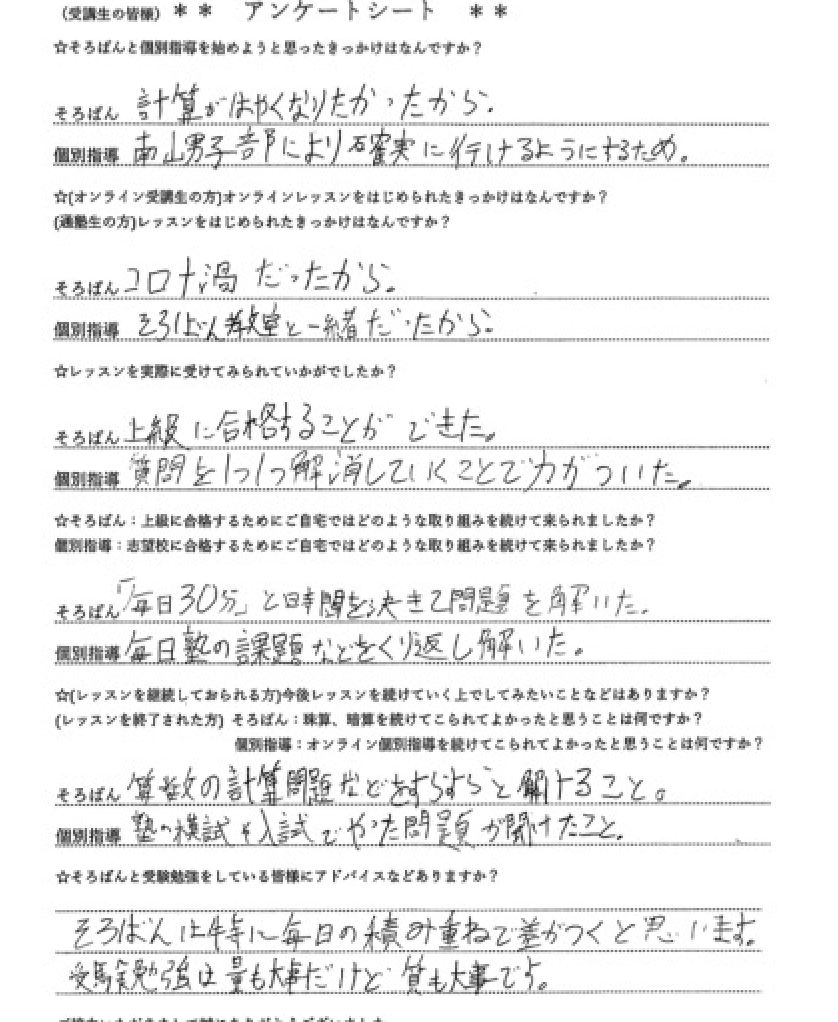 (受講生の皆様) ＊ ＊ アンケートシート ＊ ＊
☆そろばんと個別指導を始めようと思ったきっかけはなんですか？
そろばん 計算がはやくなりたかったから.
個別指導 南山男子部により確実に行けるようにするため。
☆(オンライン受講生の方)オンラインレッスンをはじめられたきっかけはなんですか？
(通塾生の方)レッスンをはじめられたきっかけはなんですか？
そろばん コロナ渦だったから。
個別指導 そろばん教室と一緒だったから.
☆レッスンを実際に受けてみられていかがでしたか？
そろばん 上級に合格することができた。
個別指導 質問を1つ1つ解消していくことで力がついた。
☆そろばん：上級に合格するためにご自宅ではどのような取り組みを続けて来られましたか？
個別指導：志望校に合格するためにご自宅ではどのような取り組みを続けて来られましたか？
そろばん 「毎日30分」と時間を決きて問題を解いた.
個別指導 毎日塾の課題などをくり返し解いた。
☆(レッスンを継続しておられる方)今後レッスンを続けていく上でしてみたいことなどはありますか？
(レッスンを終了された方) そろばん：珠算、暗算を続けてこられてよかったと思うことは何ですか？
個別指導：オンライン個別指導を続けてこられてよかったと思うことは何ですか？
そろばん 算数の計算問題などをすらすらと解けること。
個別指導 塾の模試や入試でやった問題が聞けたこと.
☆そろばんと受験勉強をしている皆様にアドバイスなどありますか？
そろばんは特に毎日の積み重ねで差がつくと思います。
受験勉強は量も大事だけど質も大事です。